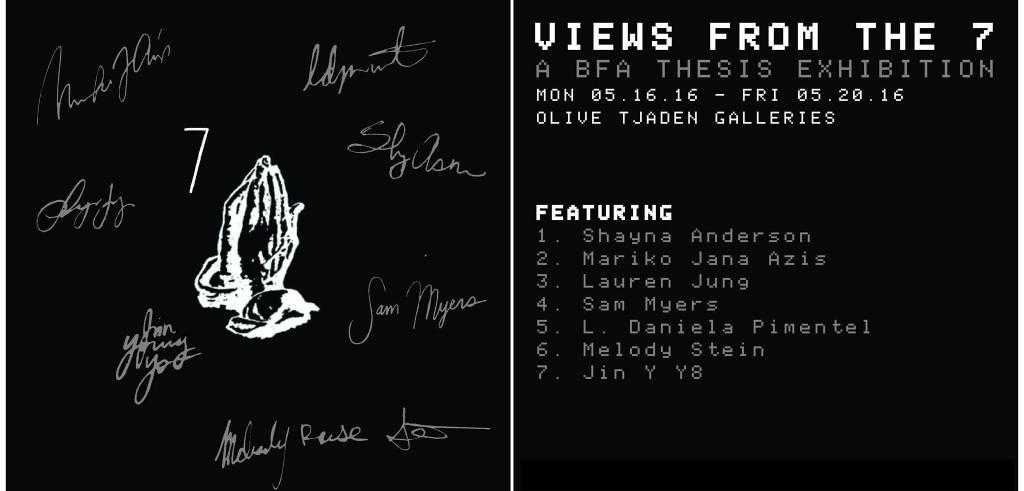 7
Sam Myers
Jin
young
yoo
Melody Rose
VIEWS FROM THE 7
A BFA THESIS EXHIBITION
MON 05.16.16 - FRI 05.20.16
OLIVE TJADEN GALLERIES
FEATURING
1. Shayna Anderson
2. Mariko Jana Azis
3. Lauren Jung
4. Sam Myers
5. L. Daniela Pimentel
6. Melody Stein
7. Jin Y Y8